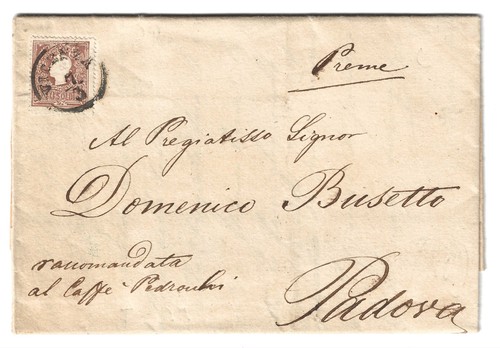 VICENZA
10 SOLDI
Preme
Al Pregiatisso Signor
Domenico Busetto
raccomandata
al Caffè Pedrocchi
Padova